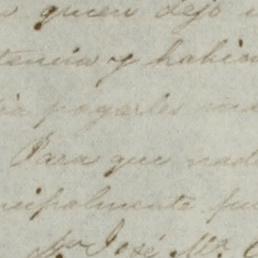 quien dejo
tencia y habien
pagarles
Para que nad
cipalmente
José Mª